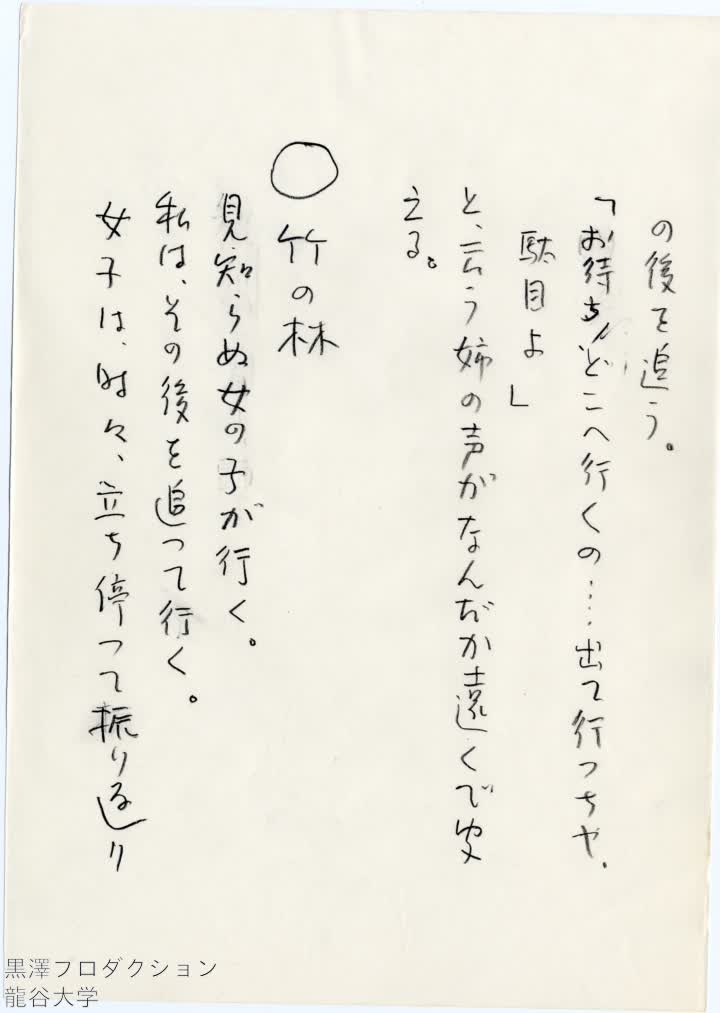 の後を追う。
「お待ち、どこへ行くの‥‥出て行っちゃ、
駄目よ」
と、云う姉の声がなんだか遠くで聞
える。
○ 竹の林
見知らぬ女の子が行く。
私は、その後を追って行く。
女子は、時々、立ち停って振り返り
黒澤プロダクション
龍谷大学